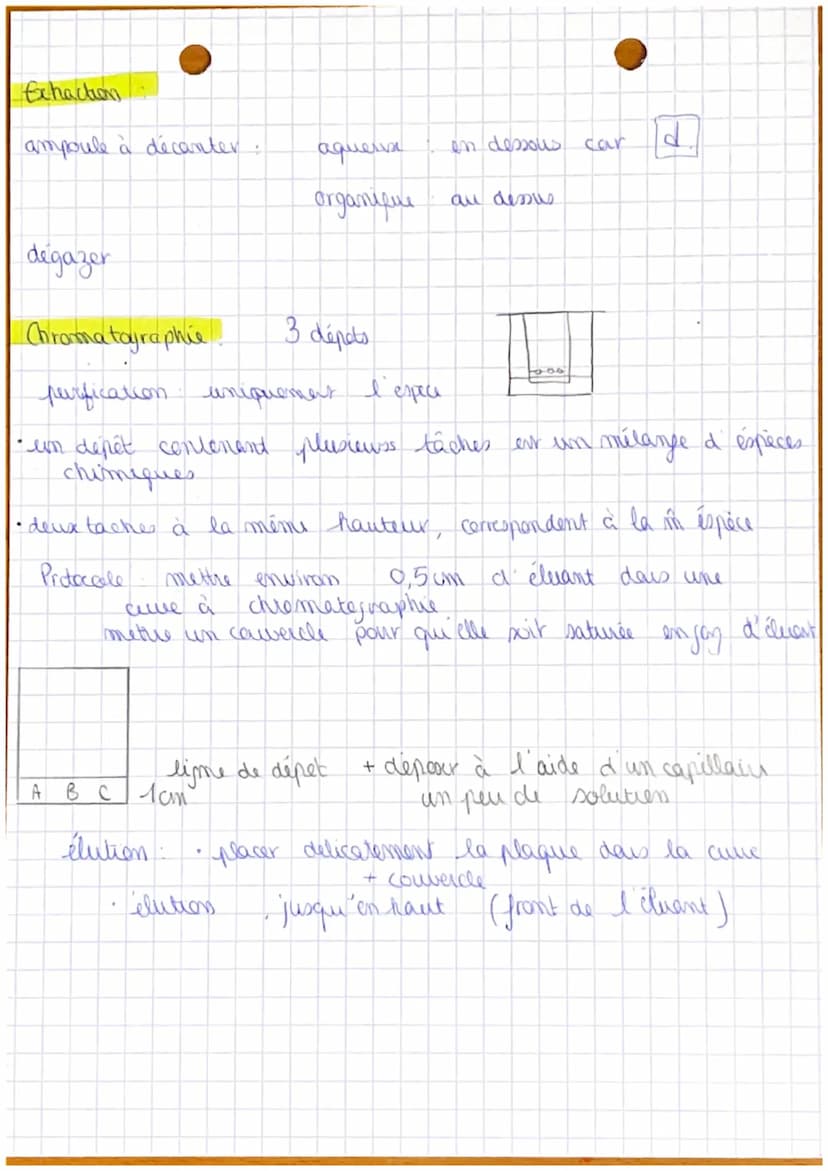 Extraction :
ampoule à décanter : aqueuse : en dessous car d.
organique : au dessus
dégazer
Chromatographie. 3 dépots
purification : uniquement l'espèce
• un dépôt contenant plusieurs tâches est un mélange d'éspèces
chimiques
• deux taches à la même hauteur, correspondent à la m̂ éspèce
Protocole : mettre environ 0,5 cm d'éluant dans une
cuve à chromatographie
mettre un couvercle pour qu'elle soit saturée en gaz d'éluant
ligne de dépet + déposer à l'aide d'un capillaire
A B C 1cm un peu de solution
élution : • placer délicatement la plaque dans la cuve
+ couvercle
• élution jusqu'en haut (front de l'éluant)